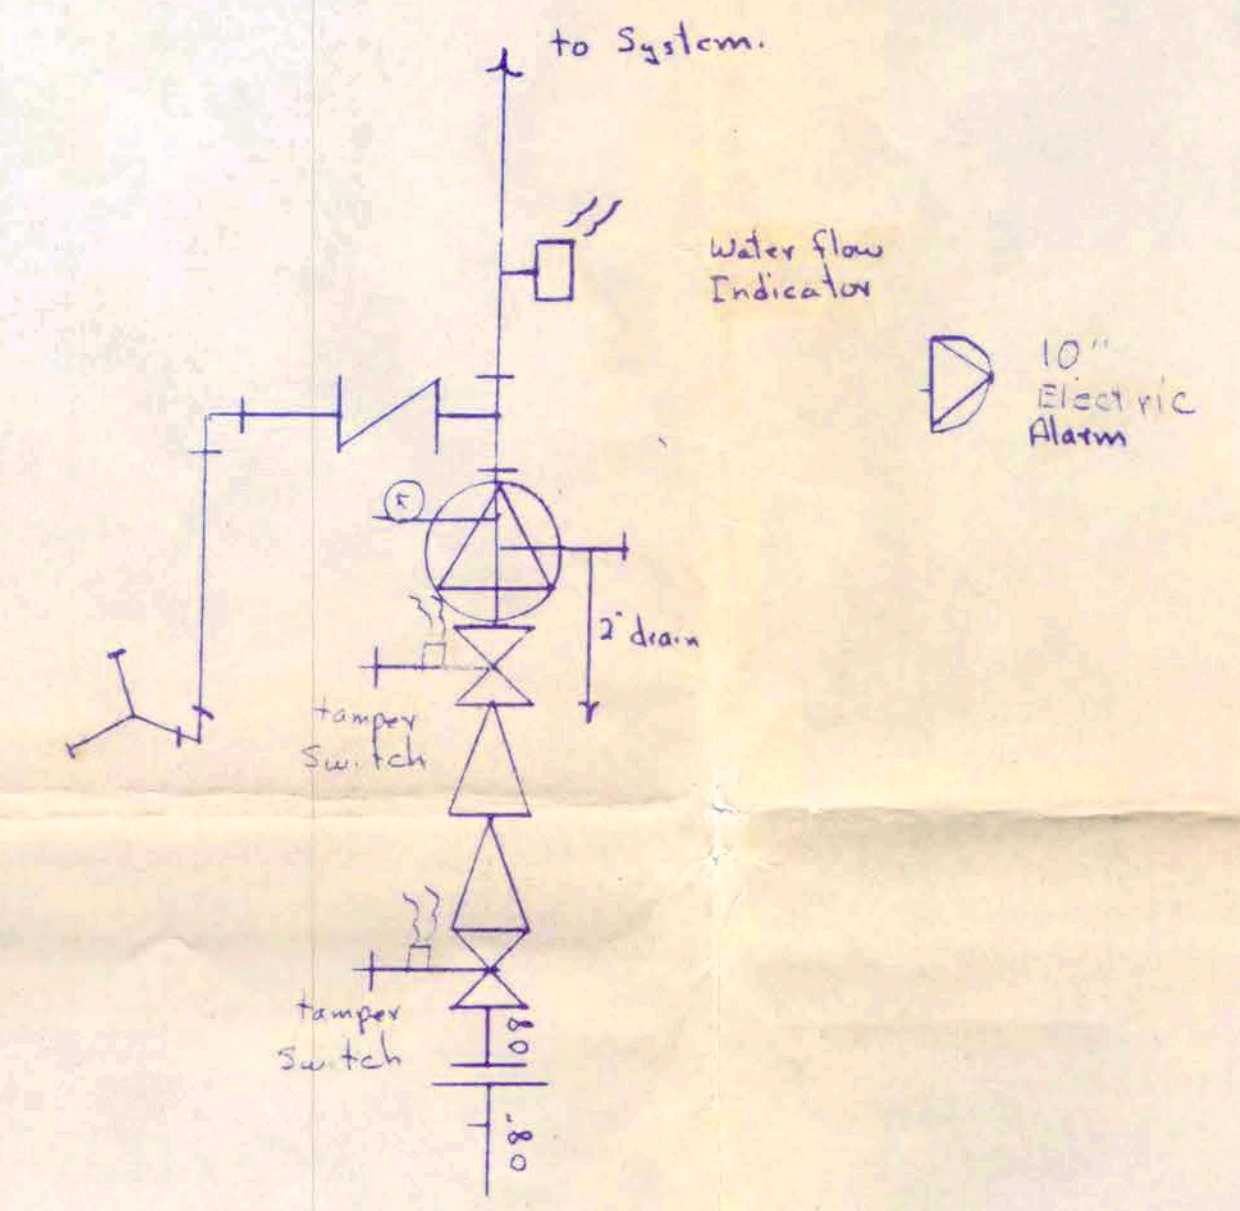 to System.
Water flow
Indicator
10"
Electric
Alarm
2" drain
tamper
Switch
tamper
Switch